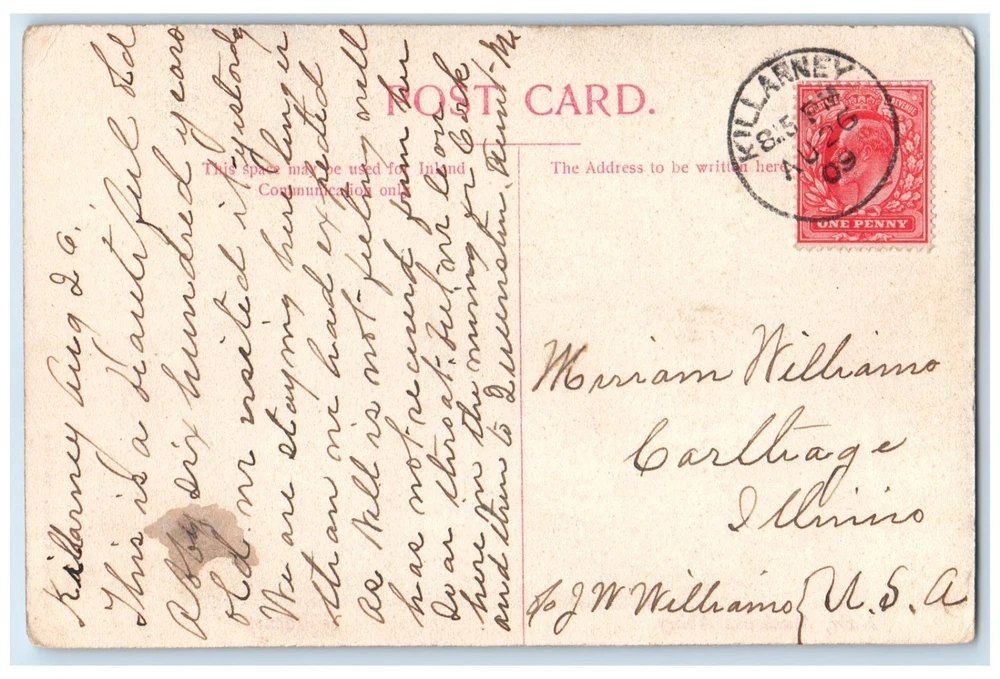 POST CARD.
This space may be used for Inland
Communication only.
The Address to be written here
KILLARNEY
8.15 PM
AU 26
09
ONE PENNY
Killarney Aug 26.
This is a beautiful old
Abby six hundred years
old. We visited it yesterday
We are staying here longer
than we had expected
as Nell is not feeling well
has not recovered from her
soar throat. But we leave
here in the morning for Cork
and then to Queenstown. Aunt M.
Mirriam Williams
Carthage
Illinois
c/o J W Williams { U. S. A